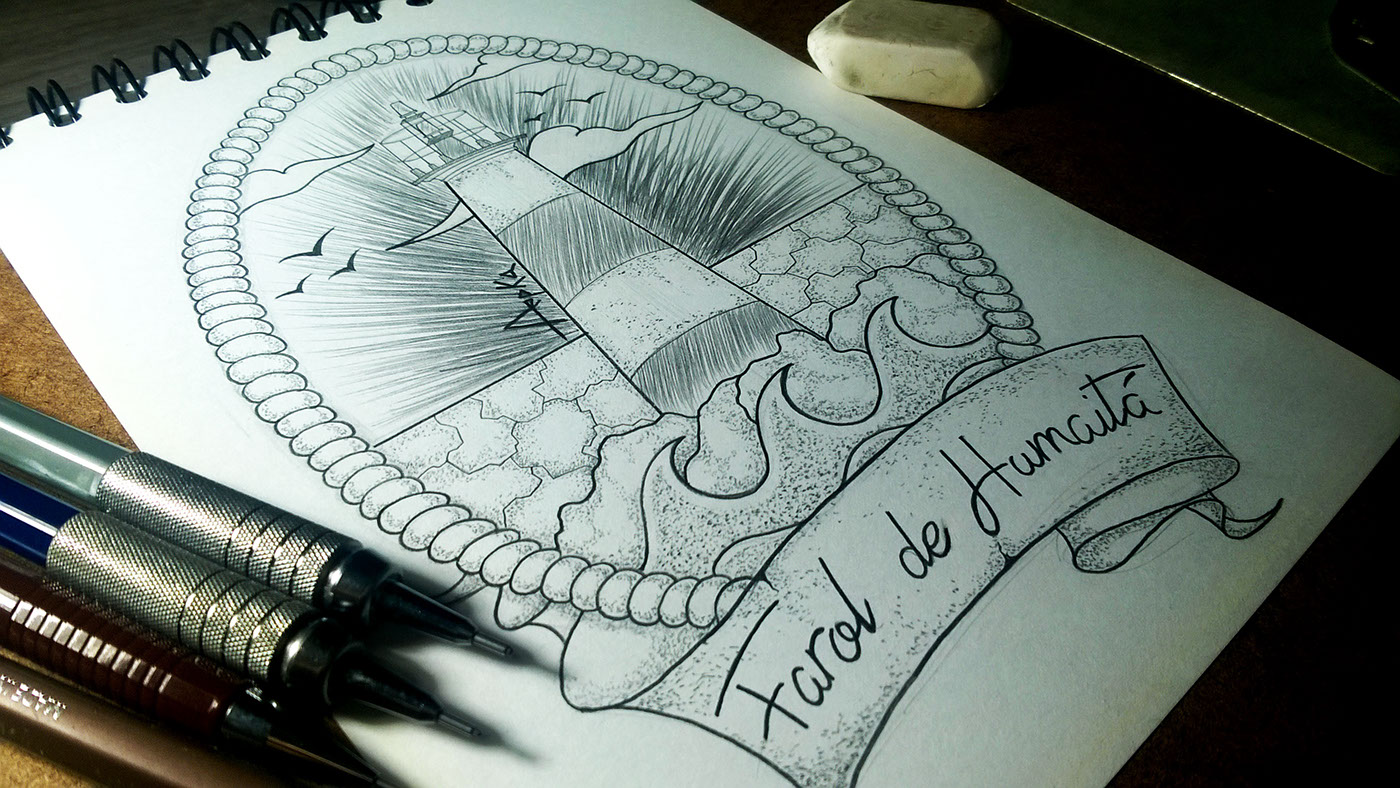 Farol de Humaitá